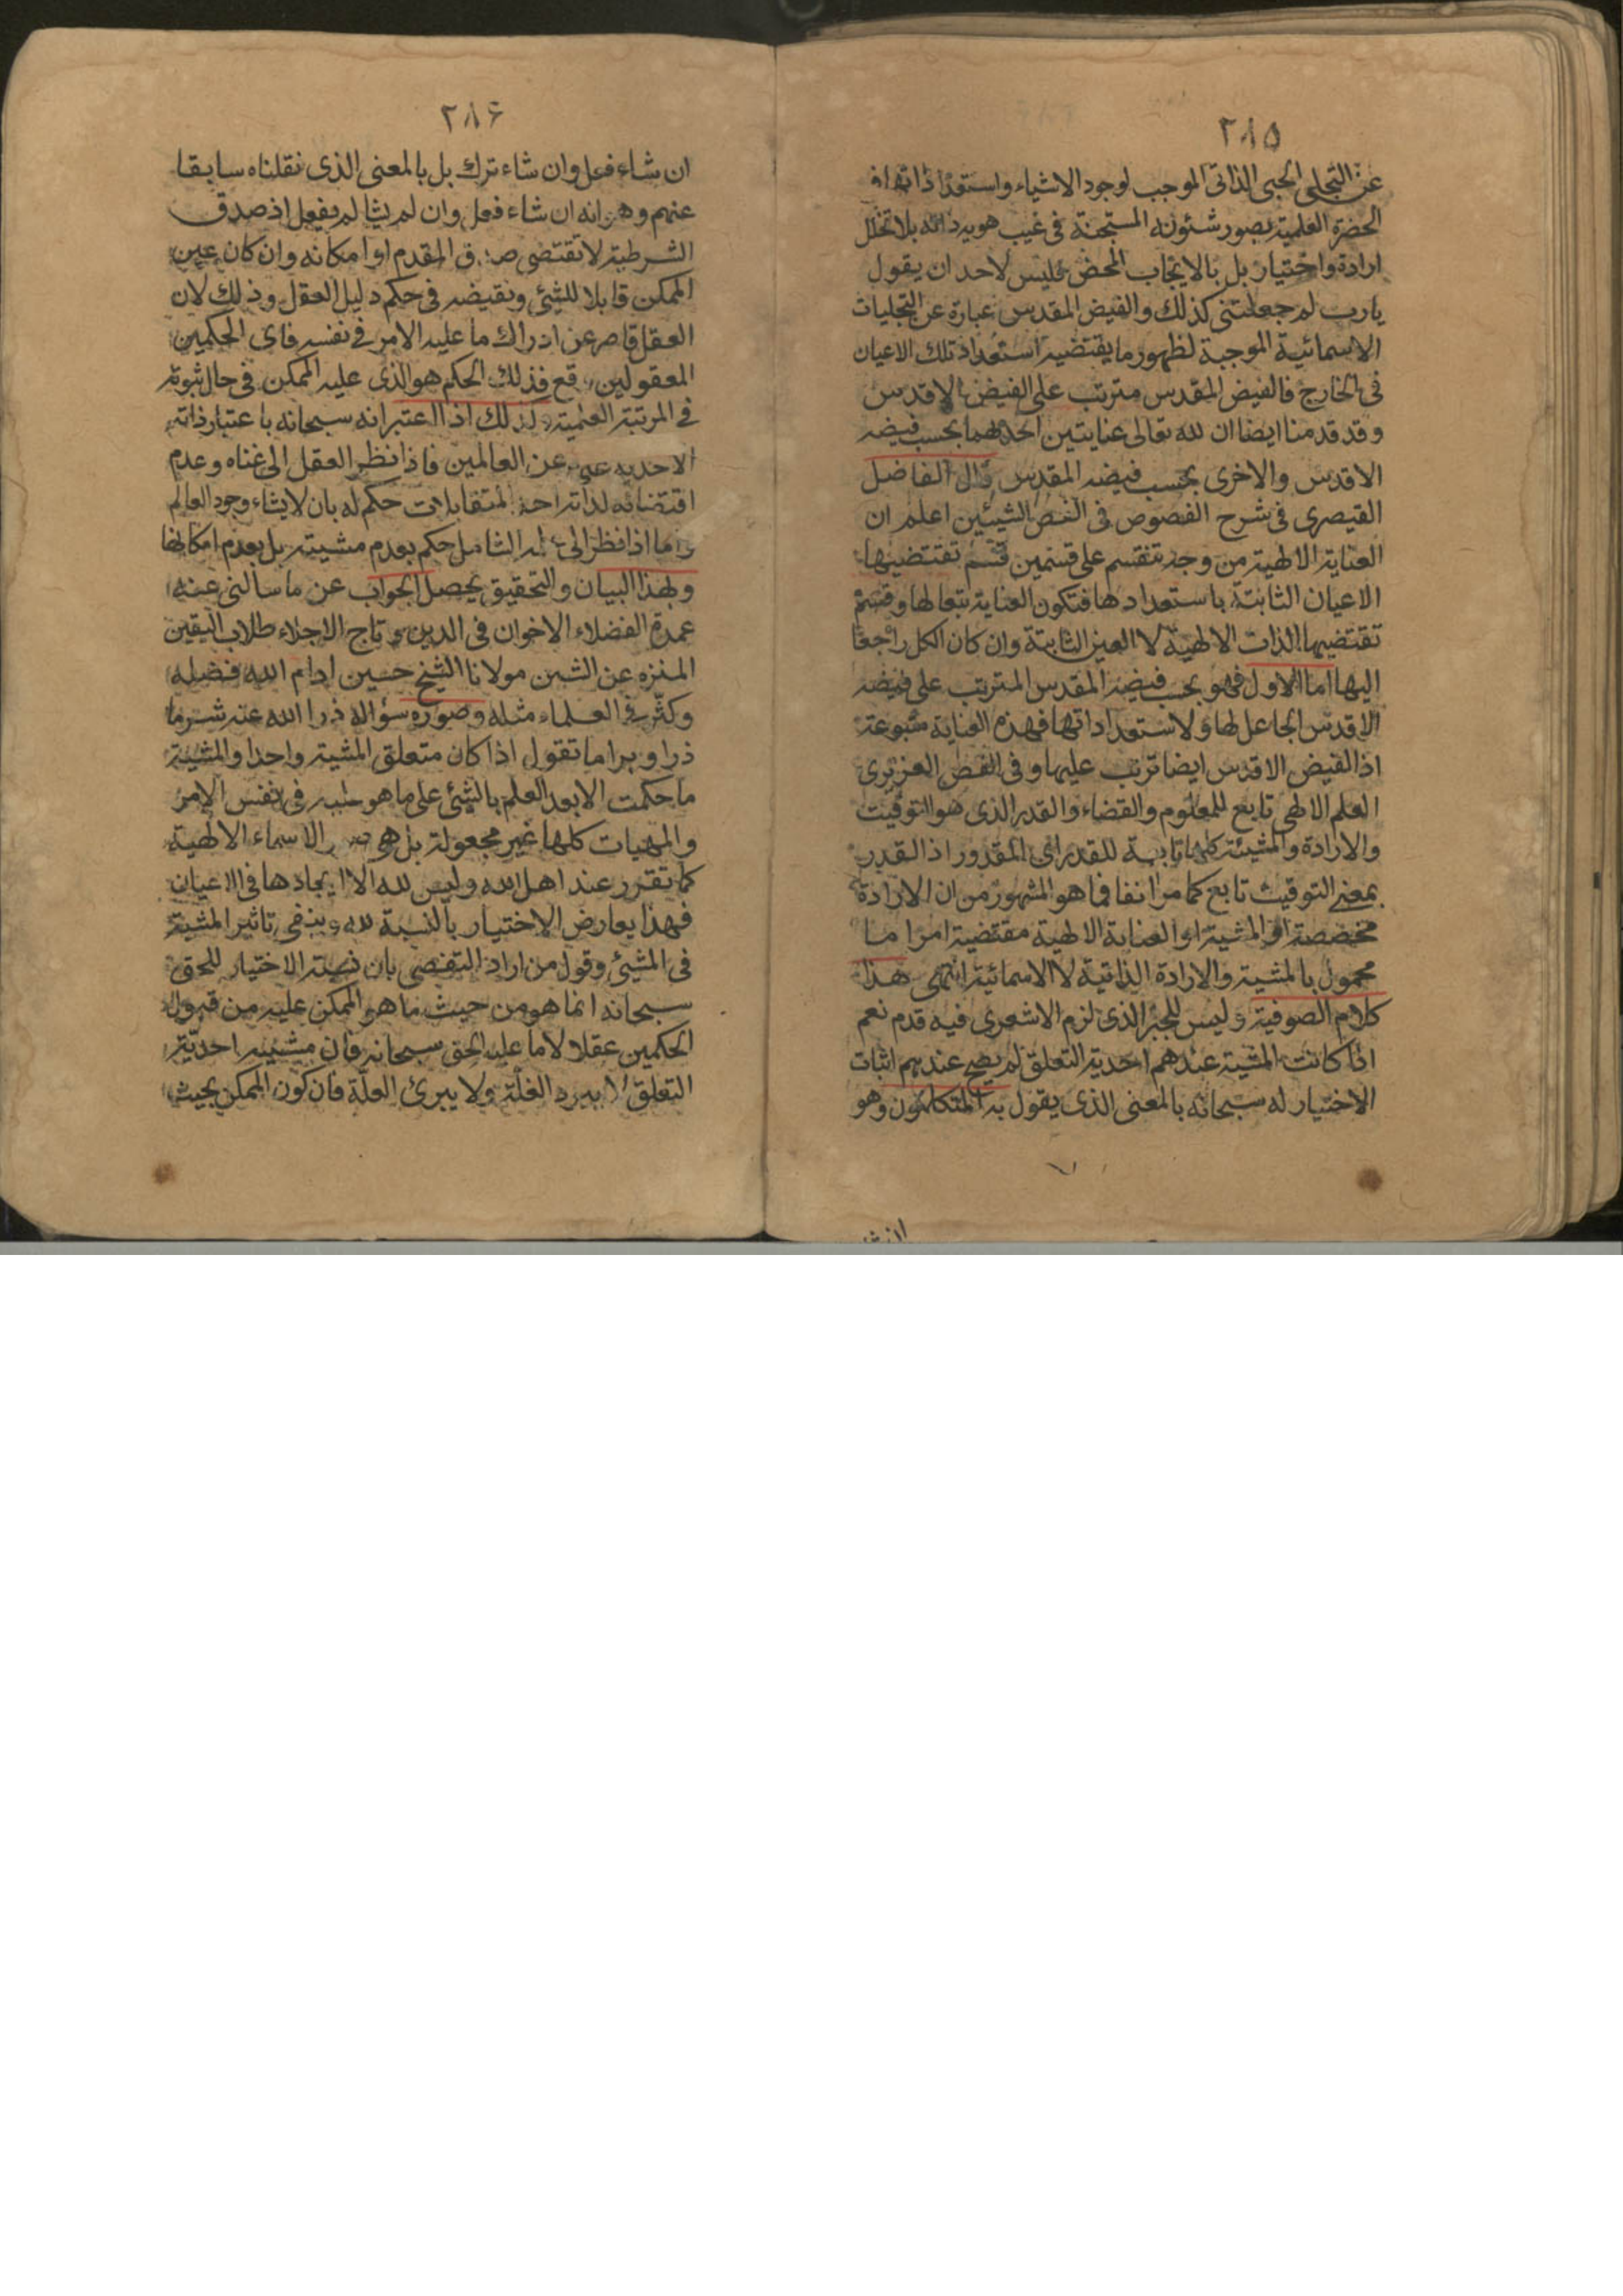 ٢٨٥
عن التجلى الحبى الذاتى الموجب لوجود الاشياء واستعداداتها فى
الحضرة العلمية بصور شئونه المستجنة فى غيب هوية ذاته بلا تخلل
ارادة واختيار بل بالايجاب المحض فليس لاحد ان يقول
يارب لم جعلتنى كذلك والفيض المقدس عبارة عن التجليات
الاسمائية الموجبة لظهور ما يقتضيه استعداد تلك الاعيان
فى الخارج فالفيض المقدس مترتب على الفيض الاقدس
وقد قدمنا ايضا ان لله تعالى عنايتين احدهما بحسب فيضه
الاقدس والاخرى بحسب فيضه المقدس قال الفاضل
القيصرى فى شرح الفصوص فى الفص الشيئين اعلم ان
العناية الالهية من وجه تنقسم على قسمين قسم تقتضيها
الاعيان الثابتة باستعدادها فتكون العناية تبعا لها وقسم
تقتضيها الذات الالهية لا العين الثابتة وان كان الكل راجعا
اليها اما الاول فهو بحسب فيضه المقدس المترتب على فيضه
الاقدس الجاعل لها ولاستعداداتها فهذه العناية متبوعة
اذ الفيض الاقدس ايضا ترتب عليها وفى الفص العزيرى
العلم الالهى تابع للمعلوم والقضاء والقدر الذى هو التوقيت
والارادة والمشيئة كلها تابعة للقدر اى المقدور اذ القدر
بمعنى التوقيت تابع كما مر انفا فما هو المشهور من ان الارادة
مخصصة او المشية او العناية الالهية مقتضية امرا ما
محمول بالمشية والارادة الذاتية لا الاسمائية انتهى هذا
كلام الصوفية وليس للجبر الذى لزم الاشعرى فيه قدم نعم
اذا كانت المشية عندهم احدية التعلق لم يصح عندهم اثبات
الاختيار له سبحانه بالمعنى الذى يقول به المتكلمون وهو
٢٨٦
ان شاء فعل وان شاء ترك بل بالمعنى الذى نقلناه سابقا
عنهم وهو انه ان شاء فعل وان لم يشا لم يفعل اذ صدق
الشرطية لا تقتضى المقدم او امكانه وان كان عين
الممكن قابلا للشئ ونقيضه فى حكم دليل العقل وذلك لان
العقل قاصر عن ادراك ما عليه الامر فى نفسه فاى الحكمين
المعقولين وقع فذلك الحكم هو الذى عليه الممكن فى حال ثبوته
فى المرتبة العلمية وكذلك اذا اعتبر انه سبحانه باعتبار ذاته
الاحدية غنى عن العالمين فاذا نظر العقل الى غناه وعدم
اقتضائه لذاته احد المتقابلات حكم له بان لا يشاء وجود العالم
واما اذا نظر الى علمه الشامل حكم بعدم مشيته بل بعدم امكانها
وبهذا البيان والتحقيق يحصل الجواب عن ما سالنى عنه
عمدة الفضلاء الاخوان فى الدين وتاج الاجلاء طلاب اليقين
المنزه عن الشين مولانا الشيخ حسين ادام الله فضله
وكثر فى العلماء مثله وصورة سؤاله ذرا الله عنه شر ما
ذرا وبرا ما تقول اذا كان متعلق المشية واحدا والمشية
ما حكمت الا بعد العلم بالشئ على ما هو عليه فى نفس الامر
والمهيات كلها غير مجعولة بل هى صور الاسماء الالهية
كما تقرر عند اهل الله وليس لله الا ايجادها فى الاعيان
فهذا يعارض الاختيار بالنسبة لله وينفى تاثير المشية
فى المشيئ وقول من اراد التفصى بان نسبة الاختيار للحق
سبحانه انما هو من حيث ما هو الممكن عليه من قبول
الحكمين عقلا لا ما عليه الحق سبحانه فان مشيته احدية
التعلق لا يبرد الغلة ولا يبرئ العلة فان كون الممكن بحيث